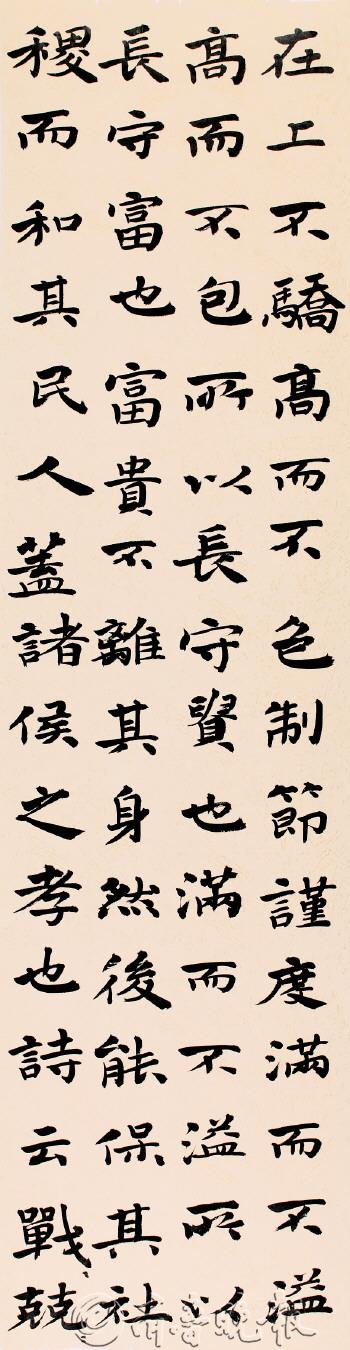 在上不驕高而不色制節謹度滿而不溢
高而不包所以長守賢也滿而不溢所以
長守富也富貴不離其身然後能保其社
稷而和其民人蓋諸侯之孝也詩云戰、兢
齊魯晚报